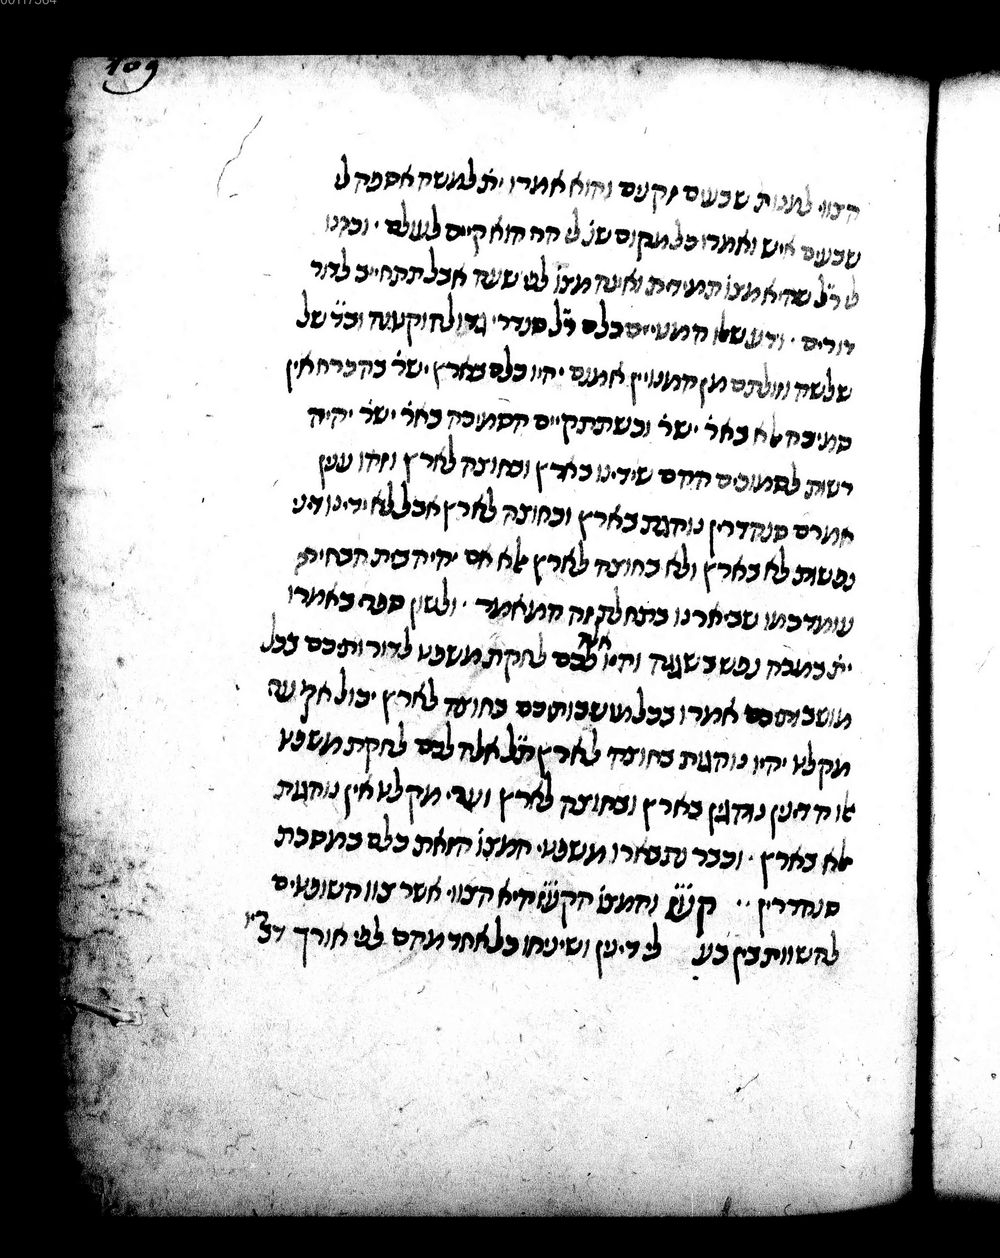 109
הצווי למנות שבעים זקנים והוא אמרו ית׳ למשה אספה לי
שבעים איש ואמרו כל מקום שנ׳ לי הרי הוא קיים לעולם ׳ וכונו
לי ר״ל שהיא מצו׳ תמידית ואינה מצו׳ לפי שעה אבל תתחייב לדור
דורים ׳ ודע שאלו המנויים כלם ר״ל סנדרי גדולה וקטנה וב״ד של
שלשה וזולתם מן המנויין אמנם יהיו כלם בארץ ישר׳ בהכרח אין
סמיכה לא באר׳ ישר׳ וכשתתקיים הסמיכה באר׳ ישר׳ יהיה
רשות לסמוכים ההם שידינו בארץ ובחוצה לארץ וזהו ענין
אמרם סנהדרין נוהגת בארץ ובחוצה לארץ אבל לא ידינו דיני
נפשות לא בארץ ולא בחוצה לארץ אלא אם יהיה בית הבחירה
עומד כמו שביארנו בתחלת זה המאמר ׳ ולשון ספרי באמרו
ית׳ במכה נפש בשגגה והיו אלה לכם לחקת משפט לדורותיכם בכל
מושבותיכם אמרו בכל מושבותיכם בחוצה לארץ יכול אף ערי
מקלט יהיו נוהגות בחוצה לארץ ת״ל אלה לכם לחקת משפט
אלו הדינין נוהגין בארץ ובחוצה לארץ וערי מקלט אין נוהגות
אלא בארץ ׳ וכבר נתבארו משפטי המצו׳ הזאת כלם במסכת
סנהדרין ׳׳ קע״ז והמצו׳ הקע״ז היא הצווי אשר צוו השופטים
להשוות בין בעלי דינין ושיניחו כל אחד מהם לפי אורך דבריו